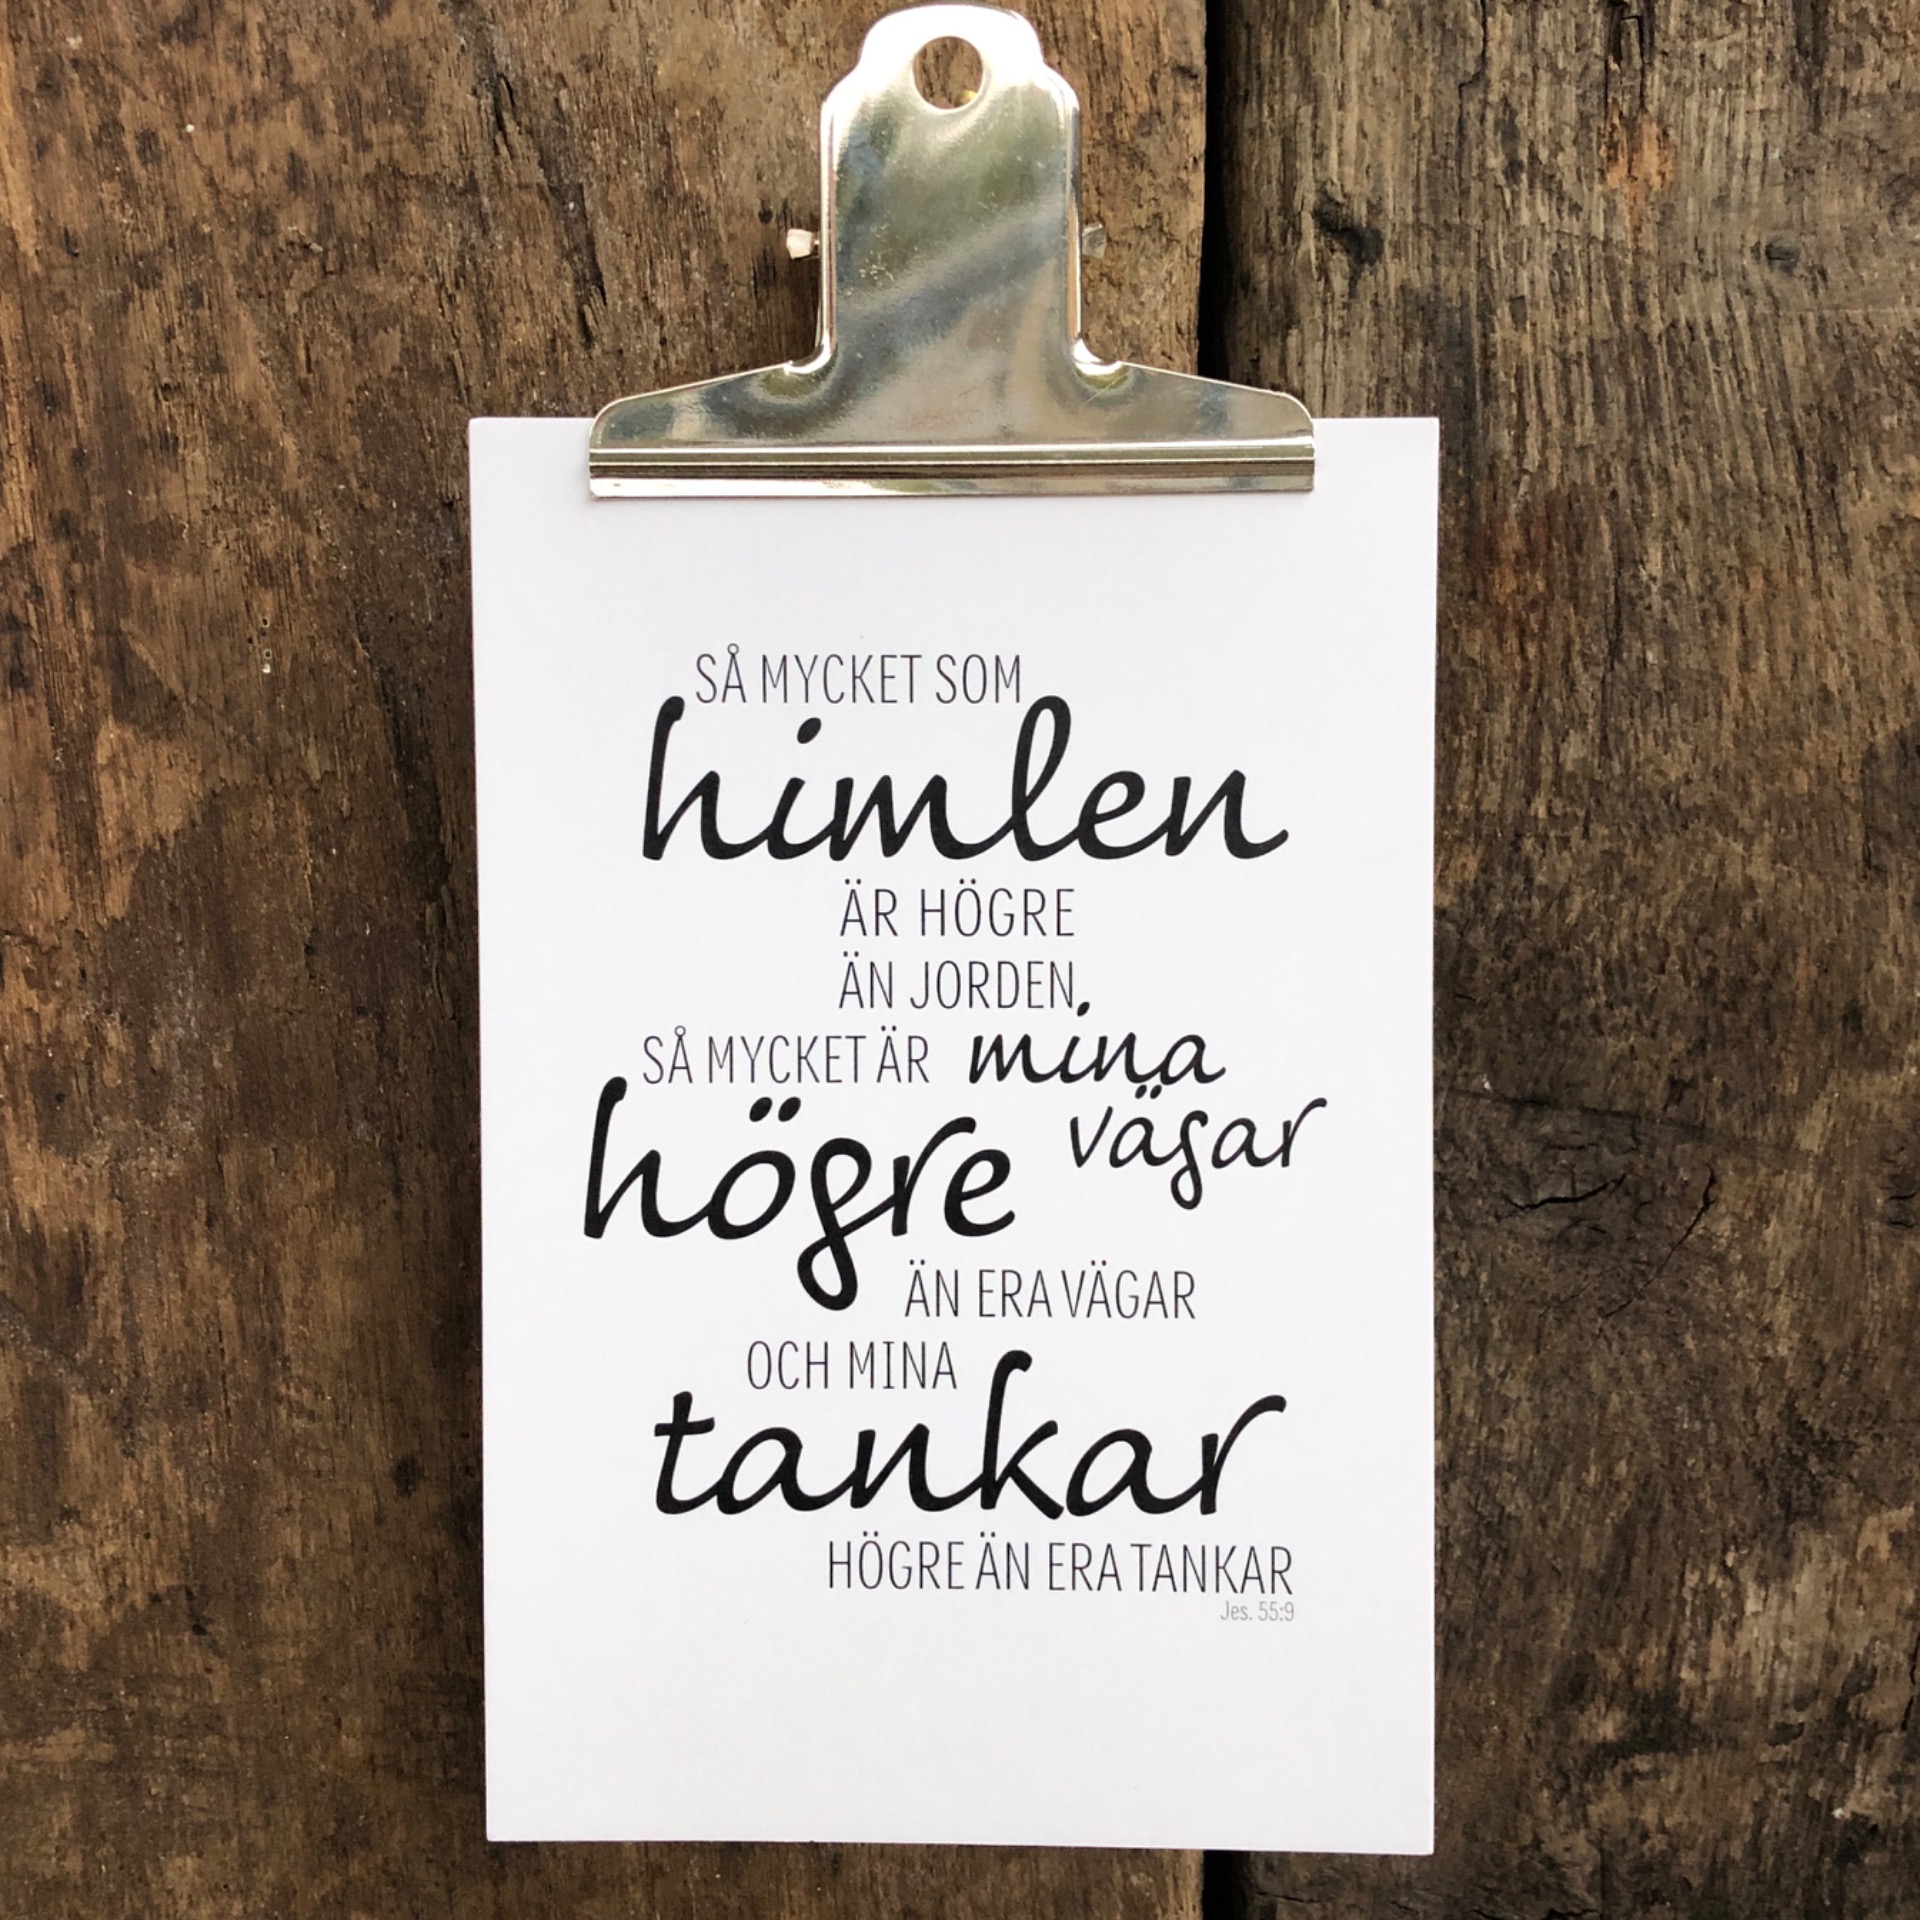 SÅ MYCKET SOM
himlen
ÄR HÖGRE
ÄN JORDEN,
SÅ MYCKET ÄR mina
högre vägar
ÄN ERA VÄGAR
OCH MINA
tankar
HÖGRE ÄN ERA TANKAR
Jes. 55:9